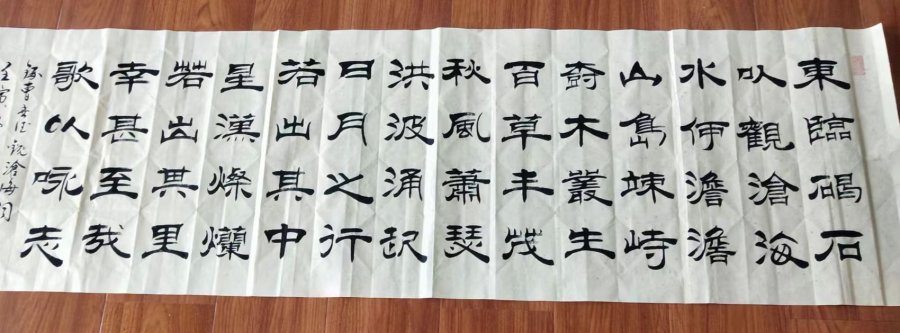 東臨碣石
以觀滄海
水何澹澹
山島竦峙
樹木叢生
百草丰茂
秋風蕭瑟
洪波涌起
日月之行
若出其中
星漢燦爛
若出其里
幸甚至哉
歌以咏志
錄曹孟德觀滄海詞
壬寅